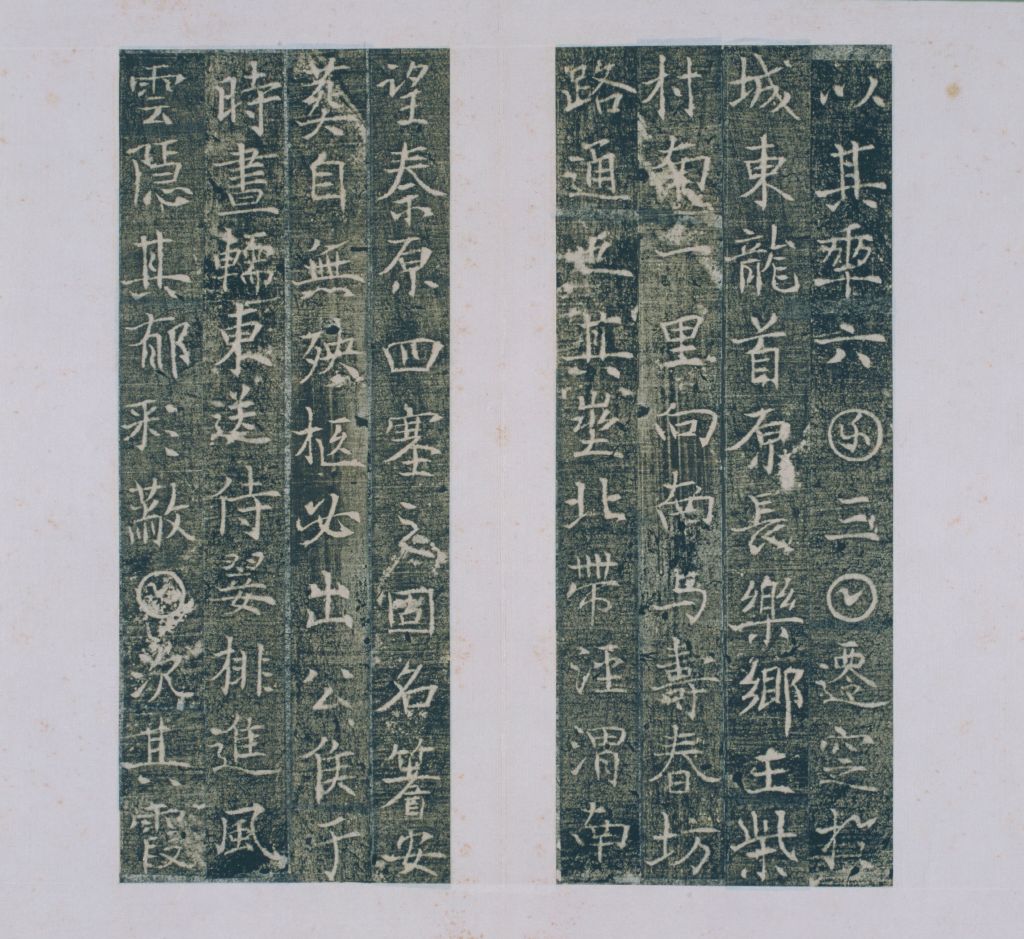 以其秊六囝三𡆠遷窆扵
城東龍首原長樂鄉王柴
村南一里向南与壽春坊
路通也其塋北帶涇渭南
望秦原四塞之固名蓍安
葬自無殃柩必出公侯于
時晝轜東送侍翣排進風
雲隱其郁彩蔽𡆠次其霞